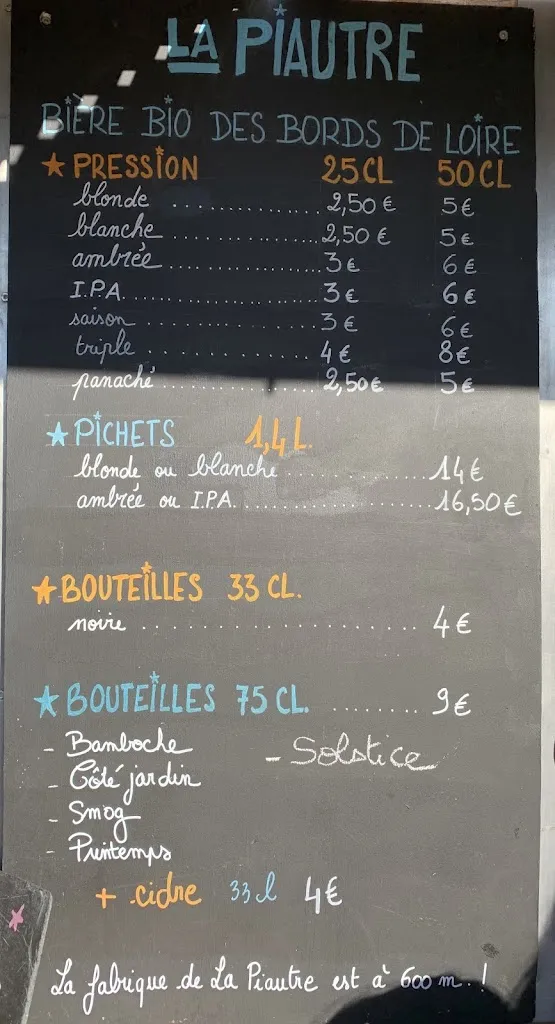 LA PIAUTRE
BIÈRE BIO DES BORDS DE LOIRE
★ PRESSION 25CL 50CL
blonde .................. 2,50 € 5€
blanche .................. 2,50 € 5€
ambrée .................. 3€ 6€
I.P.A. .................. 3€ 6€
saison .................. 3€ 6€
triple .................. 4€ 8€
panaché .................. 2,50€ 5€
★ PICHETS 1,4 L.
blonde ou blanche .................. 14€
ambrée ou I.P.A. .................. 16,50€
★ BOUTEILLES 33 CL.
noire .................. 4€
★ BOUTEILLES 75 CL. ........ 9€
- Bamboche - Solstice
- Côté jardin
- Smog
- Printemps
+ cidre 33 l 4€
La fabrique de La Piautre est à 600 m. !